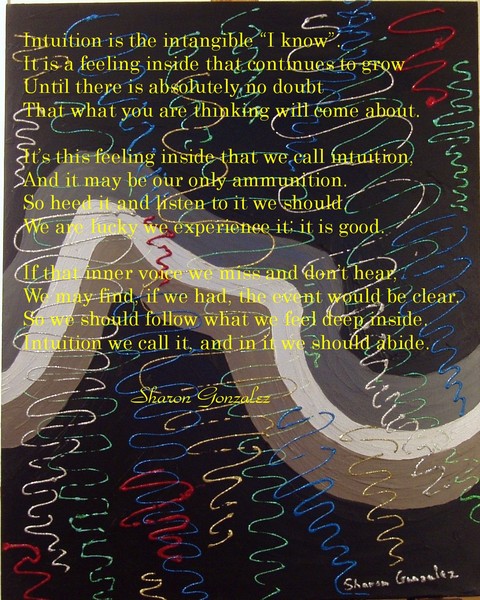 Intuition is the intangible “I know”.
It is a feeling inside that continues to grow
Until there is absolutely no doubt
That what you are thinking will come about.
It's this feeling inside that we call intuition,
And it may be our only ammunition.
So heed it and listen to it we should
We are lucky we experience it; it is good.
If that inner voice we miss and don't hear,
We may find, if we had, the event would be clear.
So we should follow what we feel deep inside.
Intuition we call it, and in it we should abide.
Sharon Gonzalez
Sharon Gonzalez